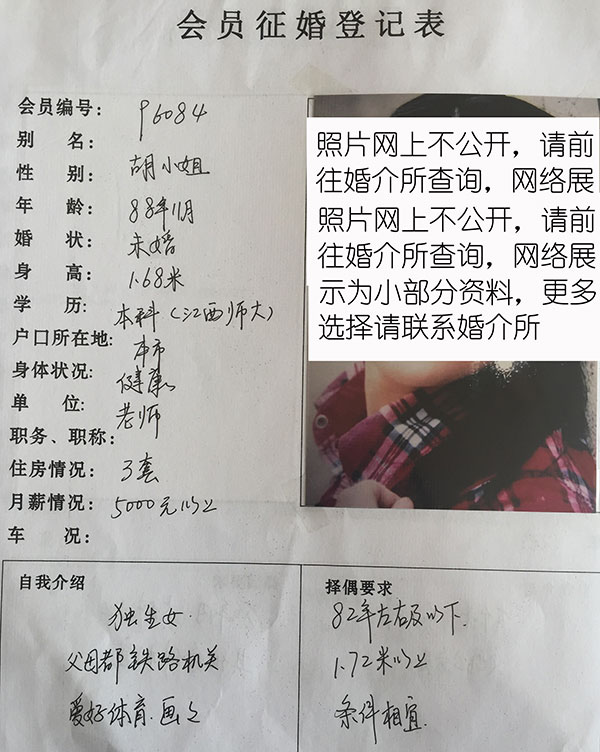 会员征婚登记表
会员编号： P6084
别 名： 胡小姐
性 别：
年 龄： 88年11月
婚 状： 未婚
身 高： 1.68米
学 历： 本科（江西师大）
户口所在地： 本市
身体状况： 健康
单 位： 老师
职务、职称：
住房情况： 3套
月薪情况： 5000元以上
车 况：
照片网上不公开，请前
往婚介所查询，网络展
照片网上不公开，请前
往婚介所查询，网络展
示为小部分资料，更多
选择请联系婚介所
自我介绍
独生女.
父母都铁路机关
爱好体育.画画
择偶要求
82年左右及以下.
1.72米以上
条件相宜.